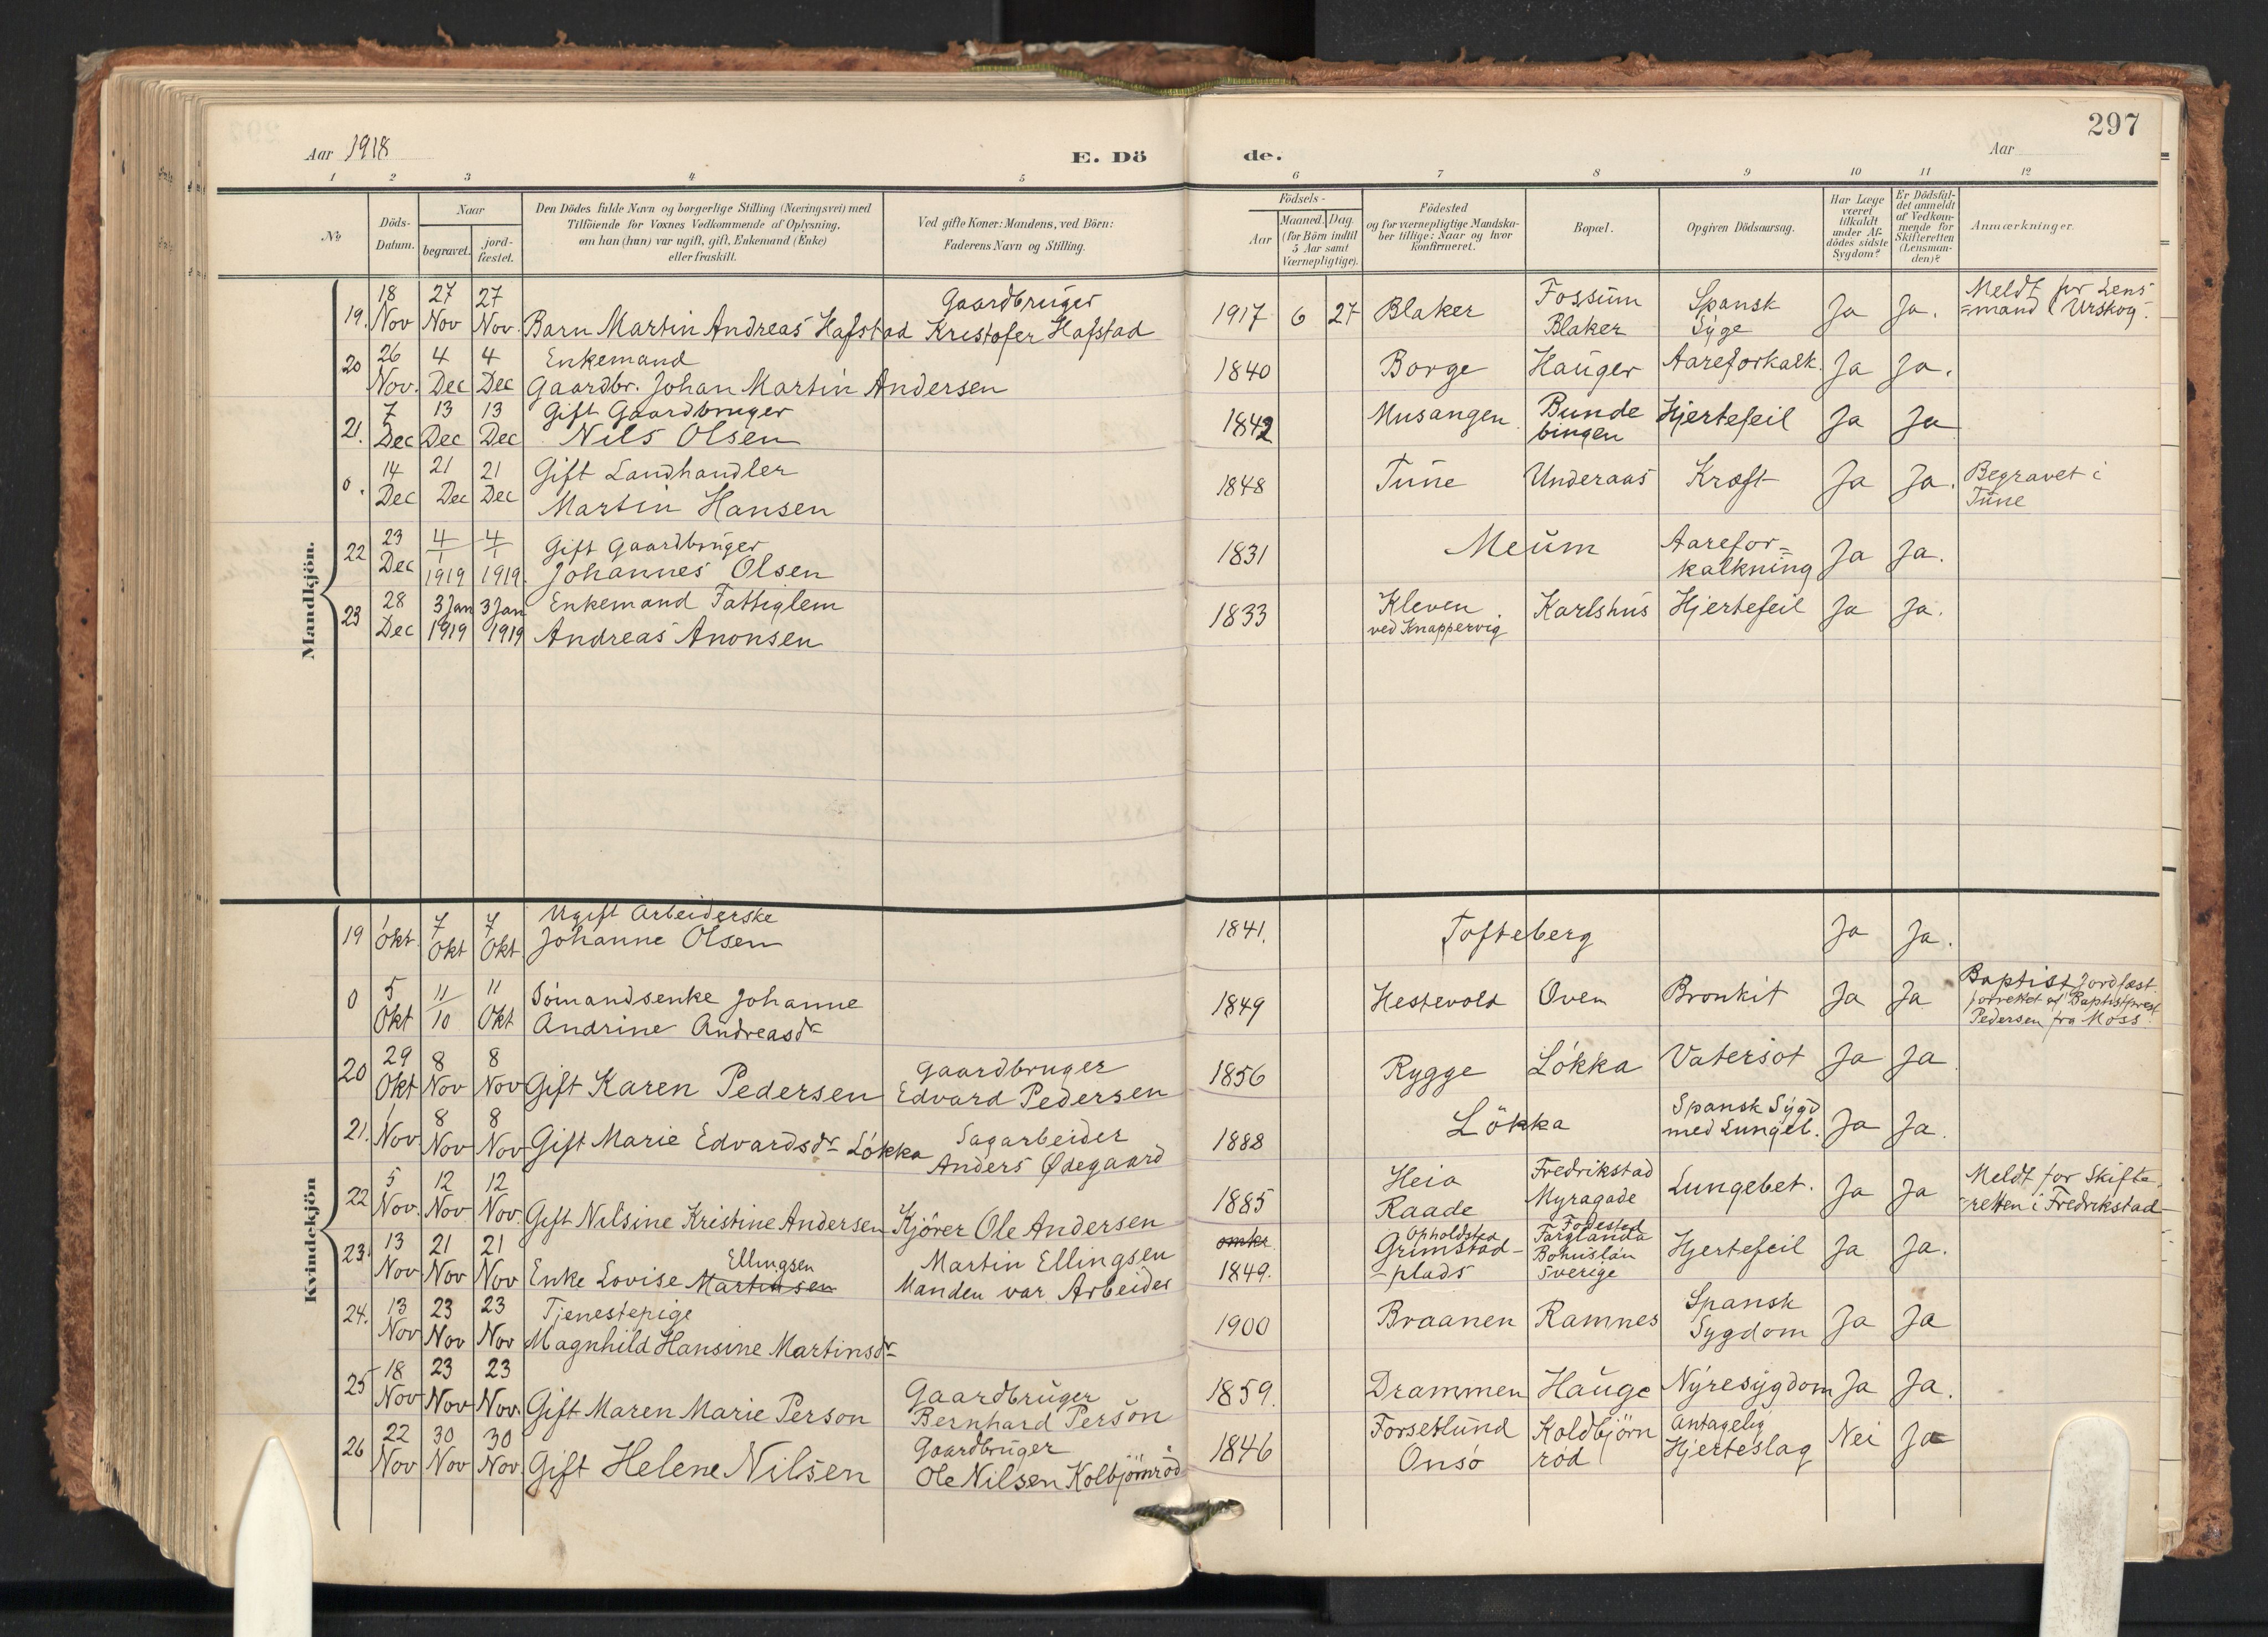 297
Aar 1918 E. Dö de. Aar
1 2 3 4 5 6 7 8 9 10 11 12
№ Döds-Datum. Naar begravet. jord-fæstet. Den Dödes fulde Navn og borgerlige Stilling (Næringsvei) med Tilföiende for Voxnes Vedkommende af Oplysning, om han (hun) var ugift, gift, Enkemand (Enke) eller fraskilt. Ved gifte Koner: Mandens, ved Börn: Faderens Navn og Stilling. Födsels- Aar Maaned. Dag. (for Börn indtil 5 Aar samt Værnepligtige). Födested og for værnepligtige Mandskaber tillige: Naar og hvor konfirmeret. Bopæl. Opgiven Dödsaarsag. Har Læge været tilkaldt under Afdödes sidste Sygdom? Er Dödsfaldet anmeldt af Vedkommende for Skifteretten (Lensmanden)? Anmærkninger.
Mandkjön.
18 27 27 Gaardbruger Fossum Spansk Meldt for Lens-
19. Nov Nov Nov. Barn Martin Andreas Hafstad Kristofer Hafstad 1917 6 27 Blaker Blaker Syge Ja Ja. =mand i Urskog.
26 4 4 Enkemand
20 Nov. Dec Dec Gaardbr. Johan Martin Andersen 1840 Borge Hauger Aareforkalk. Ja Ja.
7 13 13 Gift Gaardbruger Bunde
21. Dec Dec Dec Nils Olsen 1842 Musangen bingen Hjertefeil Ja Ja
14 21 21 Gift Landhandler Begravet i
0. Dec Dec Dec Martin Hansen 1848 Tune Underaas Kræft Ja Ja. Tune
23 4 4 Gift Gaardbruger Aarefor=
22 Dec 1 1 1919 1919. Johannes Olsen 1831 Meum kalkning Ja Ja.
28 3 Jan 3 Jan Enkemand Fattiglem Kleven
23 Dec 1919 1919 Andreas Anonsen 1833 ved Knappervig Karlshus Hjertefeil Ja Ja.
Kvindekjön
1 7 7 Ugift Arbeiderske
19 Okt. Okt Okt. Johanne Olsen 1841. Tofteberg Ja Ja.
5 11 11 Sömandsenke Johanne Baptist jordfæst.
0 Okt 10 Okt Andrine Andreasdr 1849 Hestevold Oven Bronkit Ja Ja forrettet af Baptistprest
Pedersen fra Moss.
29 8 8 Gaardbruger
20 Okt Nov Nov Gift Karen Pedersen Edvard Pedersen 1856 Rygge Lökka Vatersot Ja Ja
1 8 8 Sagarbeider Spansk Sygd
21. Nov Nov Nov Gift Marie Edvardsdr Lökka Anders Ødegaard 1888 Lökka med Lungeb. Ja Ja.
5 12 12 Heia Fredrikstad Meldt for Skifte-
22 Nov. Nov Nov. Gift Nilsine Kristine Andersen Kjörer Ole Andersen 1885 Raade Myragade Lungebet. Ja Ja =retten i Fredrikstad
13 21 21 Ellingsen Martin Ellingsen omkr. Opholdsted Födested
23. Nov Nov Nov Enke Lovise Martinsen Manden var Arbeider 1849. Grimstad- Färglanda Hjertefeil Ja Ja.
-plads Bohuslän
Sverige
13 23 23 Tjenestepige Spansk
24. Nov Nov Nov Magnhild Hansine Martinsdr 1900 Braanen Ramnes Sygdom Ja Ja
18 23 23 Gaardbruger
25 Nov Nov Nov. Gift Maren Marie Person Bernhard Person 1859. Drammen Hauge Nyresygdom Ja Ja.
22 30 30 Gaardbruger Forsetlund Koldbjörn Antagelig
26 Nov Nov Nov. Gift Helene Nilsen Ole Nilsen Kolbjörnröd 1846 Onsö röd Hjerteslag Nei Ja